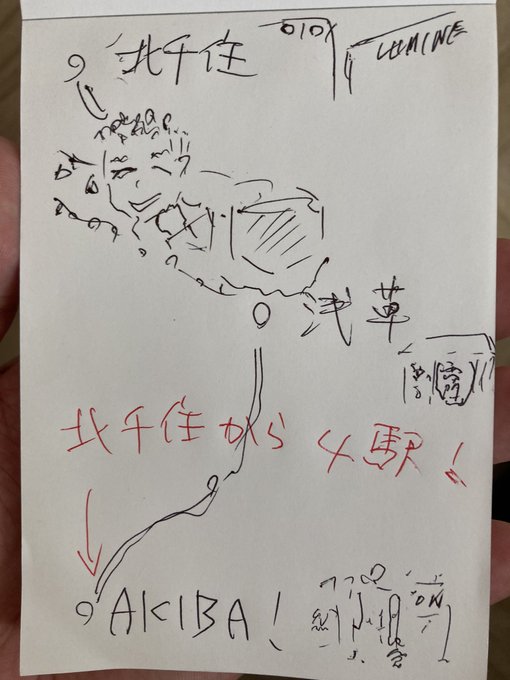 北千住
OIOI
LUMINE
浅草
北千住から4駅!
AKIBA!